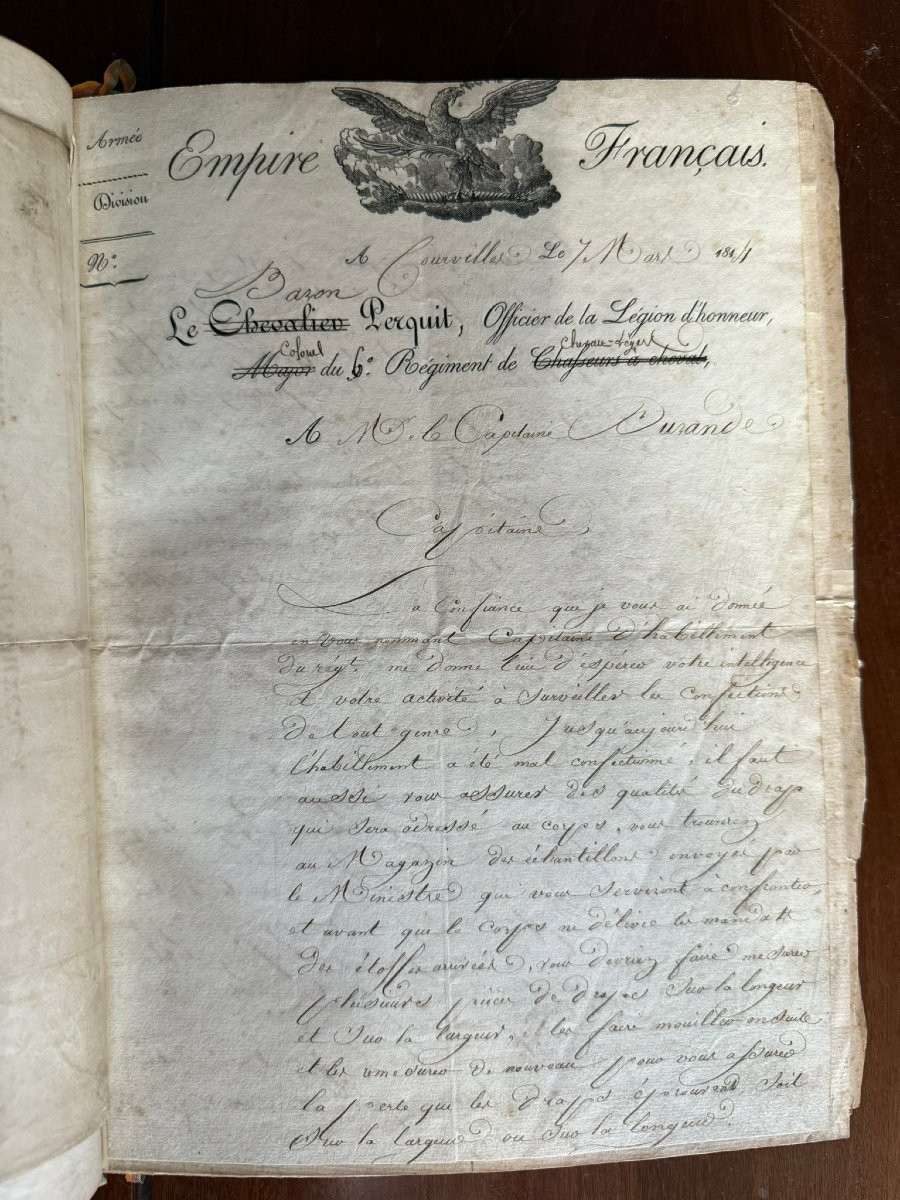 Armée
Division
N.º
Empire Français.
A Courville Le 7 Mars 1814
Baron
Le Chevalier Perquit, Officier de la Légion d'honneur,
Colonel Chevau-Légers
Major du 6.e Régiment de Chasseurs à cheval,
A M. le Capitaine Durande
Capitaine,
La Confiance que je vous ai donnée
en vous nommant Capitaine d'habillement
du régt. me donne lieu d'espérer votre intelligence
et votre activité à surveiller les confections
de tout genre. Jusqu'aujourd'hui
l'habillement a été mal confectionné, il faut
aussi vous assurer des qualités du drap
qui sera adressé au corps, vous trouverez
au Magazin des échantillons envoyés par
le Ministre qui vous serviront à confronter,
et avant que le corps ne délivre les mandats
des étoffes arrivées, vous devriez faire mesurer
plusieures pièces de drapes sur la longeur
et sur la largeur, les faire mouiller ensuite
et les remesurer de nouveau pour vous assurer
la perte que les draps éprouvent, soit
sur la largeur ou sur la longeur.